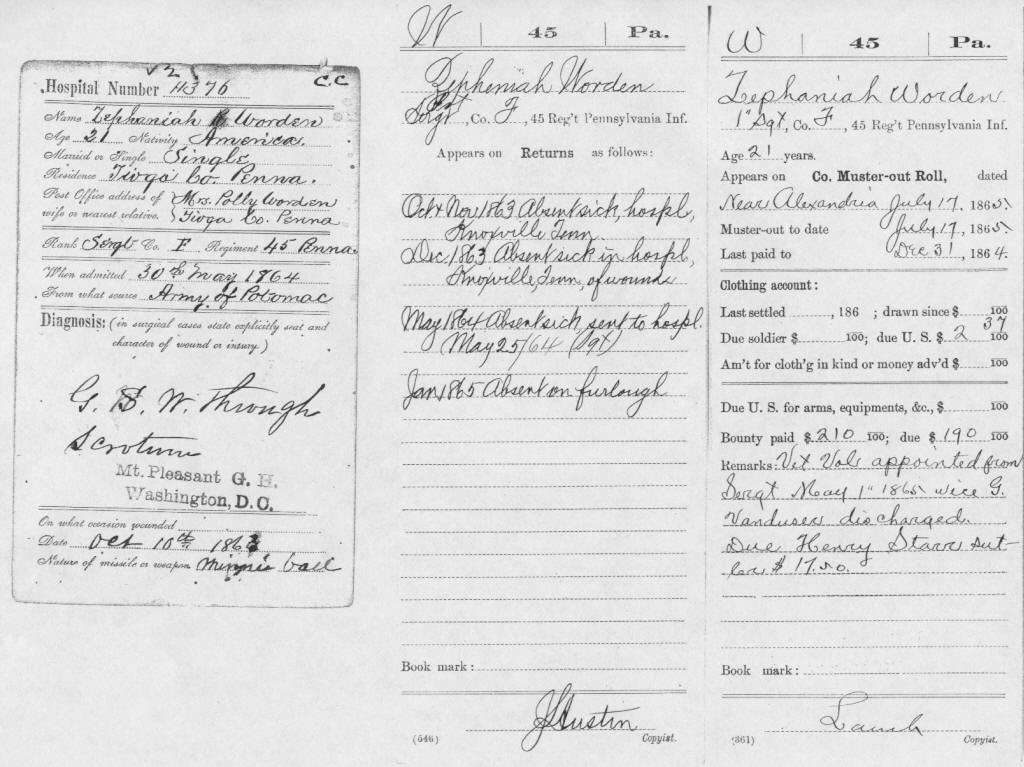 v2
C.C
Hospital Number 11376
Name Zephaniah Worden
Age 21 Nativity America.
Married or Single Single
Residence Tioga Co. Penna.
Post Office address of wife or nearest relative. Mrs. Polly Worden
Tioga Co. Penna
Rank Sergt Co. F Regiment 45 Penna
When admitted 30th May 1864
From what source Army of Potomac
Diagnosis: (in surgical cases state explicitly seat and
character of wound or injury.)
G. S. W. Through
Scrotum
Mt. Pleasant G. H.
Washington, D.C.
On what occasion wounded
Date Oct 10th 1863
Nature of missile or weapon Minnie ball
W | 45 | Pa.
Zepheniah Worden
Sergt, Co. F, 45 Reg't Pennsylvania Inf.
Appears on Returns as follows:
Oct & Nov 1863 Absent sick, hospl,
Knoxville Tenn.
Dec. 1863 Absent sick in hospl,
Knoxville Tenn, of wounds
May 1864 Absent sick, sent to hospl.
May 25/64 (Sgt)
Jan 1865 Absent on furlough
Book mark:
J S Austin
(546) Copyist.
W | 45 | Pa.
Zephaniah Worden
1" Sgt, Co. F, 45 Reg't Pennsylvania Inf.
Age 21 years.
Appears on Co. Muster-out Roll, dated
Near Alexandria July 17, 1865.
Muster-out to date July 17, 1865.
Last paid to Dec 31, 1864.
Clothing account:
Last settled , 186 ; drawn since $ 100
Due soldier $ 100; due U. S. $ 2 37 100
Am't for cloth'g in kind or money adv'd $ 100
Due U. S. for arms, equipments, &c., $ 100
Bounty paid $ 210 100; due $ 190 100
Remarks: Vet Vol appointed from
Sergt May 1" 1865 vice G.
Vanduser discharged.
Due Henry Starr sut-
ler $ 17.50.
Book mark:
(361) Copyist.